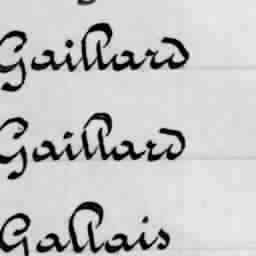 Gaillard
Gaillard
Gallais